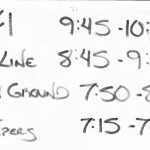 F1 9:45-10:
LINE 8:45-9:
GROUND 7:50-8
PERS 7:15-7